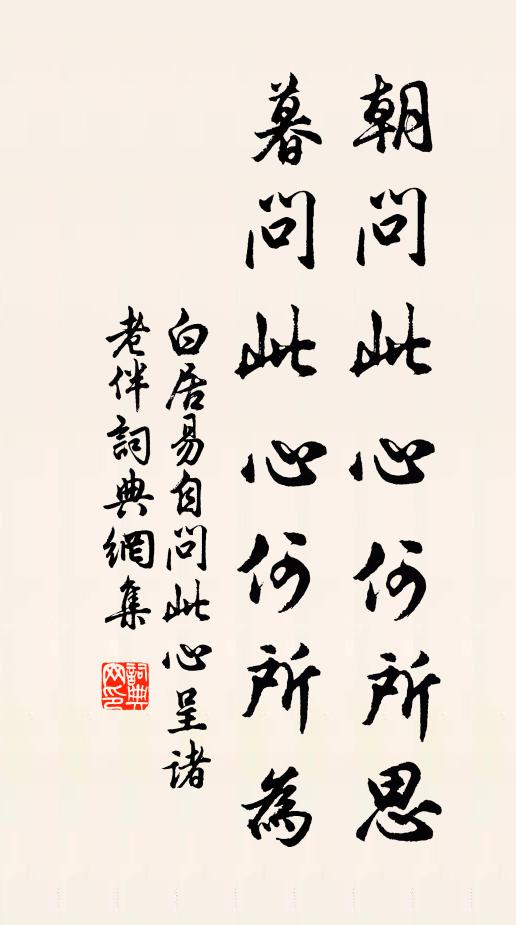 朝問此心何所思
暮問此心何所為
白居易自問此心呈諸
老伴詞典網集
詞典
网印